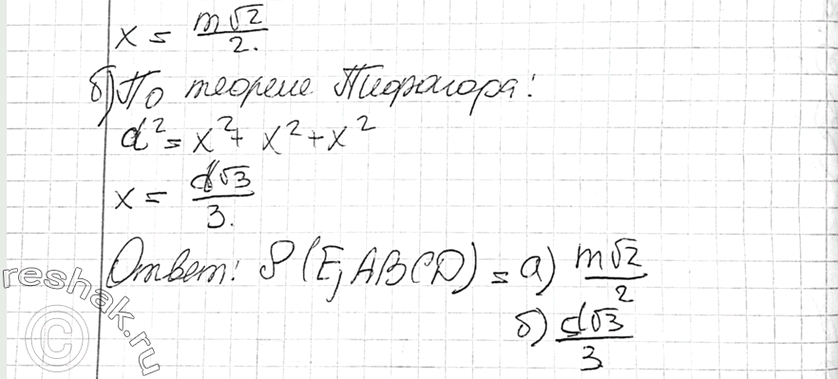 x = m√2/2.
б) По теореме Пифагора:
d² = x² + x² + x²
x = d√3/3.
Ответ: P(E, ABCD) = а) m√2/2
б) d√3/3
reshak.ru
©